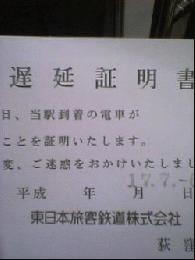 遅延証明書
日、当駅到着の電車が
ことを証明いたします。
変、ご迷惑をおかけいたしまし
平成 年 月 日
17.7.-
東日本旅客鉄道株式会社
荻窪